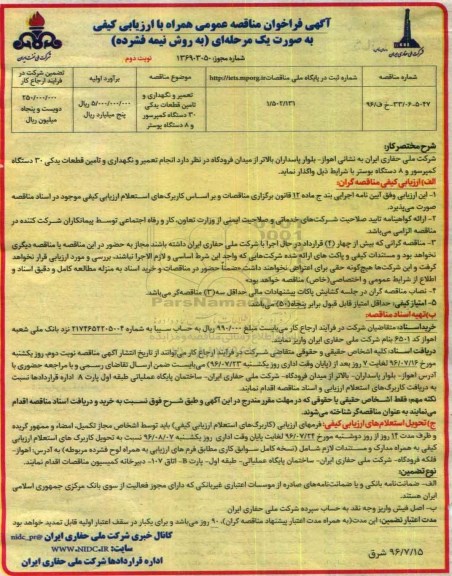 آگهی فراخوان مناقصه عمومی همراه با ارزیابی کیفی
به صورت یک مرحله‌ای (به روش نیمه فشرده)
شماره مجوز: ۱۳۶۹۰۳۰۵۰
نوبت دوم
شماره مناقصه
شماره ثبت در پایگاه ملی مناقصات http://iets.mporg.ir
موضوع مناقصه
برآورد اولیه
تضمین شرکت در فرایند ارجاع کار
تعمیر و نگهداری و تامین قطعات یدکی ۳۰ دستگاه کمپرسور و ۸ دستگاه بوستر
۵/۰۰۰/۰۰۰/۰۰۰ ریال پنج میلیارد ریال
۲۵۰/۰۰۰/۰۰۰ دویست و پنجاه میلیون ریال
شرح مختصر کار:
شرکت ملی حفاری ایران به نشانی اهواز- بلوار پاسداران بالاتر از میدان فرودگاه در نظر دارد انجام تعمیر و نگهداری و تامین قطعات یدکی ۳۰ دستگاه
کمپرسور و ۸ دستگاه بوستر با شرایط ذیل واگذار نماید.
الف) ارزیابی کیفی مناقصه گران:
۱- این ارزیابی وفق آیین نامه اجرایی بند ج ماده ۱۲ قانون برگزاری مناقصات و بر اساس کاربرگ‌های استعلام ارزیابی کیفی موجود در اسناد مناقصه
صورت می‌پذیرد.
۲- ارائه گواهینامه تایید صلاحیت شرکت‌های خدماتی و صلاحیت ایمنی از وزارت تعاون، کار و رفاه اجتماعی توسط پیمانکاران شرکت کننده در
مناقصه الزامی می‌باشد.
۳- مناقصه گرانی که بیش از چهار (۴) قرارداد در حال اجرا با شرکت ملی حفاری ایران داشته باشند، مجاز به حضور در این مناقصه یا مناقصه دیگری
نخواهد بود و مستندات کیفی و پاکت های ارائه شده شرکت‌هایی که واجد این شرط اساسی و لازم الاجرا نباشند، بررسی و مورد ارزیابی قرار نخواهد
گرفت و این شرکت‌ها هیچ‌گونه حقی برای اعتراض نخواهند داشت ضمناً حضور در مناقصات و خرید اسناد به منزله مطالعه کامل و دقیق اسناد و
اطلاع از شرایط عمومی و اختصاصی (خاص) مناقصه خواهد بود.
۴- نصاب مناقصه گران در جلسه گشایش پاکات پیشنهادات مالی حداقل سه (۳) مناقصه‌گر می باشد.
۵- امتیاز کیفی: حداقل امتیاز قابل قبول برابر پنجاه (۵۰) می‌باشد.
ب) تهیه اسناد مناقصه:
خرید اسناد: متقاضیان شرکت در فرآیند ارجاع کار می‌بایست مبلغ ۹۹۰/۰۰۰ ریال به حساب سیبا به شماره ۲۱۷۴۶۵۲۲۰۵۰۰۴ نزد بانک ملی شعبه
اهواز کد ۶۵۰۱ بنام شرکت ملی حفاری ایران واریز نمایند.
دریافت اسناد: کلیه اشخاص حقیقی و حقوقی متقاضی شرکت در فرآیند ارجاع کار می‌توانند از تاریخ انتشار آگهی مناقصه نوبت دوم، روز یکشنبه
مورخ ۹۶/۰۷/۱۶ لغایت ۷ روز بعد از (پایان وقت اداری روز یکشنبه ۹۶/۰۷/۲۳) می‌بایست ضمن ارسال تقاضای رسمی و با مراجعه حضوری با
آدرس اهواز- بلوار پاسداران- بالاتر از میدان فرودگاه- شرکت ملی حفاری ایران- ساختمان پایگاه عملیاتی طبقه اول پارت A اداره قراردادها نسبت
به دریافت کاربرگ‌های استعلام ارزیابی و اسناد مناقصه اقدام نمایند.
نکته مهم: فقط اشخاص حقیقی یا حقوقی که در مهلت مقرر مندرج در این آگهی و طبق شرح فوق نسبت به خرید و دریافت اسناد مناقصه اقدام
می‌نمایند به عنوان مناقصه‌گر شناخته می‌شوند.
ج) تحویل استعلام‌های ارزیابی کیفی: فرمهای ارزیابی (کاربرگ‌های استعلام ارزیابی کیفی) باید توسط اشخاص مجاز تکمیل، امضاء و ممهور گردیده
و ظرف مدت ۱۴ روز از روز دوشنبه مورخ ۹۶/۰۷/۲۴ لغایت پایان وقت اداری روز یکشنبه ۹۶/۰۸/۰۷ نسبت به تحویل کاربرگ های استعلام ارزیابی
کیفی به همراه مدارک و مستندات لازم شامل (نسخه کامل سوابق کاری مطابق فرم های ارزیابی به همراه لوح فشرده مربوطه) به آدرس: اهواز-
فلکه فرودگاه- شرکت ملی حفاری ایران- ساختمان پایگاه عملیاتی- طبقه اول- پارت B- اتاق ۱۰۷- دبیرخانه کمیسیون مناقصات اقدام نمایند.
نوع تضمین:
الف- ضمانت‌نامه بانکی و یا ضمانت‌نامه‌های صادره از موسسات اعتباری غیربانکی که دارای مجوز فعالیت از سوی بانک مرکزی جمهوری اسلامی
ایران هستند.
ب- اصل فیش واریز وجه نقد به حساب سپرده شرکت ملی حفاری ایران
مدت اعتبار تضمین: این مدت (به همراه مدت اعتبار پیشنهاد مناقصه گران)، ۹۰ روز می‌باشد و برای یکبار در سقف اعتبار اولیه قابل تمدید خواهد بود
کانال خبری شرکت ملی حفاری ایران @nidc_pr
سایت: WWW.NIDC.IR
اداره قراردادها شرکت ملی حفاری ایران
۹۶/۷/۱۵ شرق